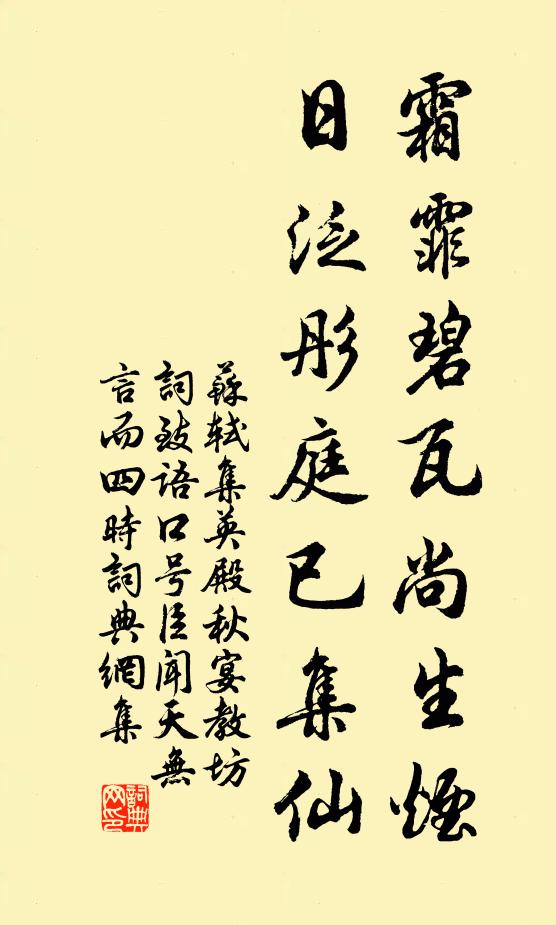 霜霏碧瓦尚生煙
日泛彤庭已集仙
蘇軾集英殿秋宴教坊
詞致語口号臣聞天無
言而四時詞典網集
詞典
网印